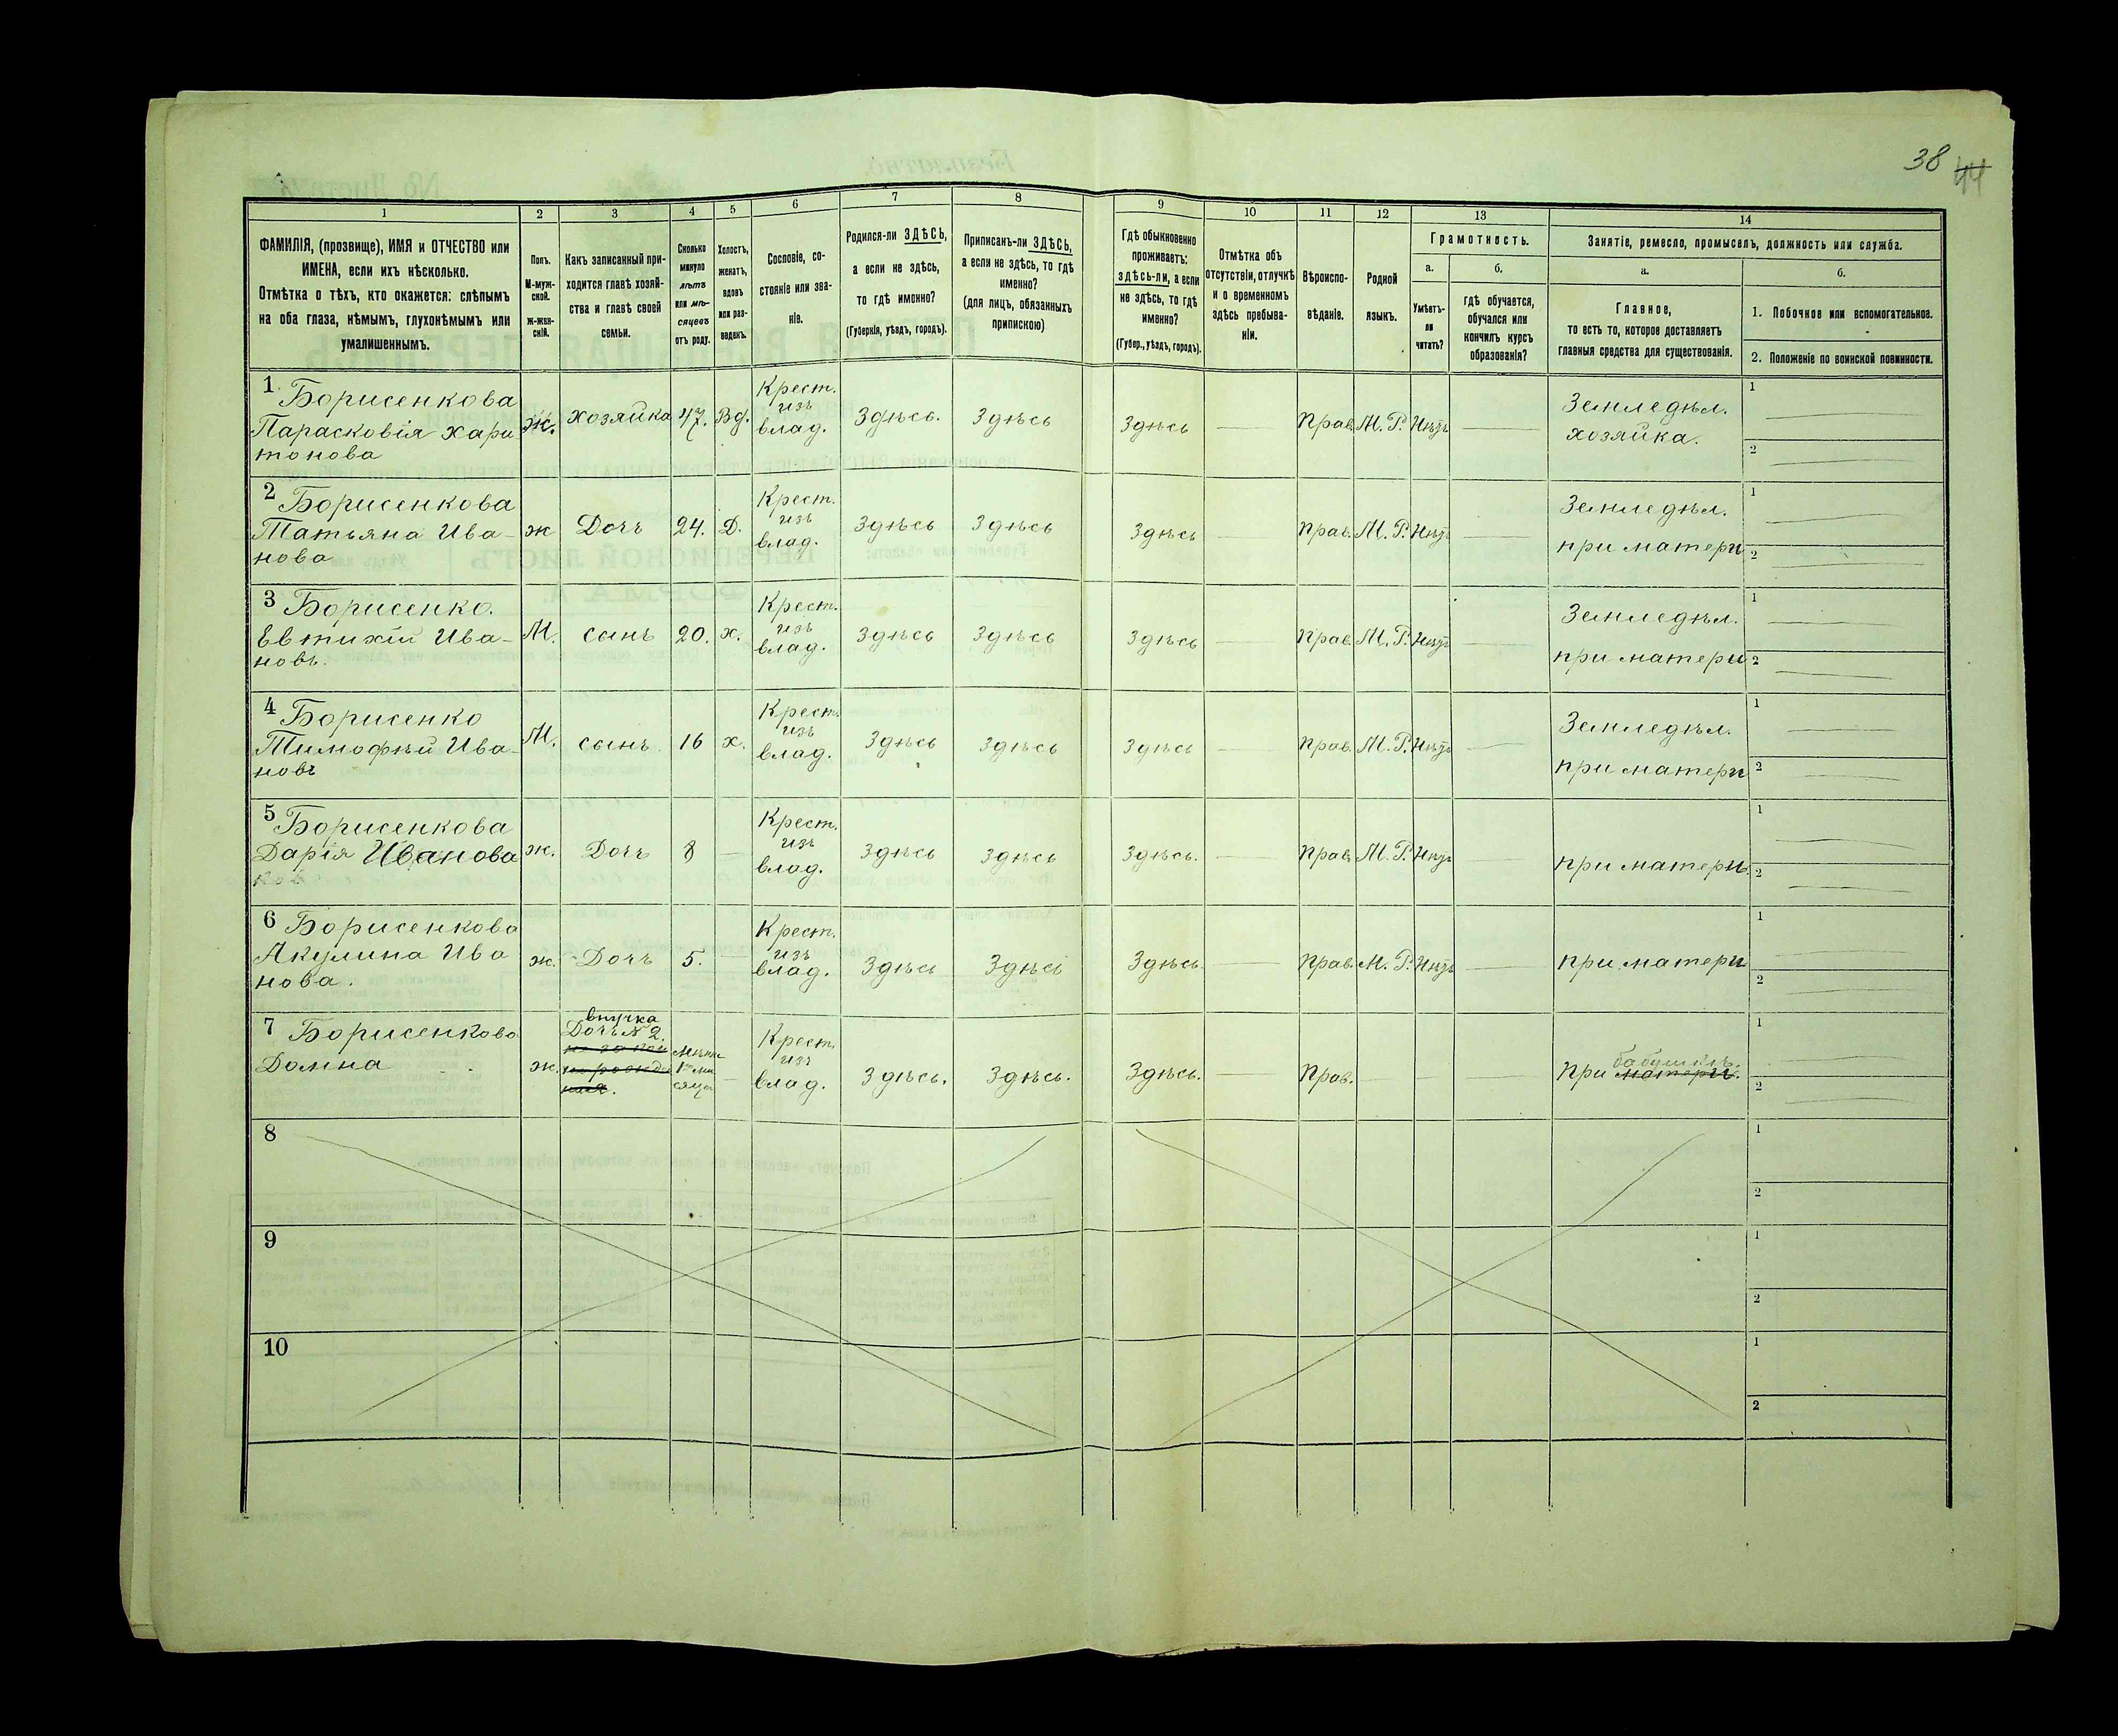 38 44
1 2 3 4 5 6 7 8 9 10 11 12 13 14
ФАМИЛІЯ, (прозвище), ИМЯ и ОТЧЕСТВО или
ИМЕНА, если ихъ нѣсколько.
Отмѣтка о тѣхъ, кто окажется: слѣпымъ
на оба глаза, нѣмымъ, глухонѣмымъ или
умалишеннымъ.
Полъ.
М-муж-
ской.
ж-жен-
скій.
Какъ записанный при-
ходится главѣ хозяй-
ства и главѣ своей
семьи.
Сколько
минуло
лѣтъ
или мѣ-
сяцевъ
отъ роду.
Холостъ,
женатъ,
вдовъ
или раз-
веденъ.
Сословіе, со-
стояніе или зва-
ніе.
Родился-ли ЗДѢСЬ,
а если не здѣсь,
то гдѣ именно?
(Губернія, уѣздъ, городъ).
Приписанъ-ли ЗДѢСЬ,
а если не здѣсь, то гдѣ
именно?
(для лицъ, обязанныхъ
припискою)
Гдѣ обыкновенно
проживаетъ:
здѣсь-ли, а если
не здѣсь, то гдѣ
именно?
(Губер., уѣздъ, городъ).
Отмѣтка объ
отсутствіи, отлучкѣ
и о временномъ
здѣсь пребыва-
ніи.
Вѣроиспо-
вѣданіе.
Родной
языкъ.
Грамотность.
а.
Умѣетъ-
ли
читать?
б.
гдѣ обучается,
обучался или
кончилъ курсъ
образованія?
Занятіе, ремесло, промыселъ, должность или служба.
а.
Главное,
то есть то, которое доставляетъ
главныя средства для существованія.
б.
1. Побочное или вспомогательное.
2. Положеніе по воинской повинности.
1 Борисенкова
Парасковія Хари
тонова
ж. хозяйка 47. Вд.
Крест.
изъ
влад.
Здѣсь. Здѣсь Здѣсь Прав. М. Р. Нѣтъ
Земледѣл.
хозяйка.
1
2
2 Борисенкова
Татьяна Ива-
нова
ж Дочь 24. Д.
Крест.
изъ
влад.
Здѣсь Здѣсь Здѣсь Прав. М. Р. Нѣтъ
Земледѣл.
при матери
1
2
3 Борисенко.
Евтихій Ива-
новъ.
М. сынъ 20. х.
Крест.
изъ
влад.
Здѣсь Здѣсь Здѣсь Прав. М. Р. Нѣтъ
Земледѣл.
при матери
1
2
4 Борисенко
Тимофѣй Ива-
новъ
М. сынъ. 16 х.
Крест.
изъ
влад.
Здѣсь Здѣсь Здѣсь Прав. М. Р. Нѣтъ
Земледѣл.
при матери
1
2
5 Борисенкова
Дарія Иванова
ж. Дочь 8
Крест.
изъ
влад.
Здѣсь Здѣсь Здѣсь. Прав. М. Р. Нѣтъ
при матери.
1
2
6 Борисенкова
Акулина Ива
нова.
ж. Дочь 5.
Крест.
изъ
влад.
Здѣсь Здѣсь Здѣсь. Прав. М. Р. Нѣтъ
при матери
1
2
7 Борисенкова
Домна
ж.
внучка
Дочь № 2.
Крест.
изъ
влад.
Здѣсь. Здѣсь. Здѣсь. Прав.
бабушкѣ.
при матери.
1
2
8
1
2
9
1
2
10
1
2